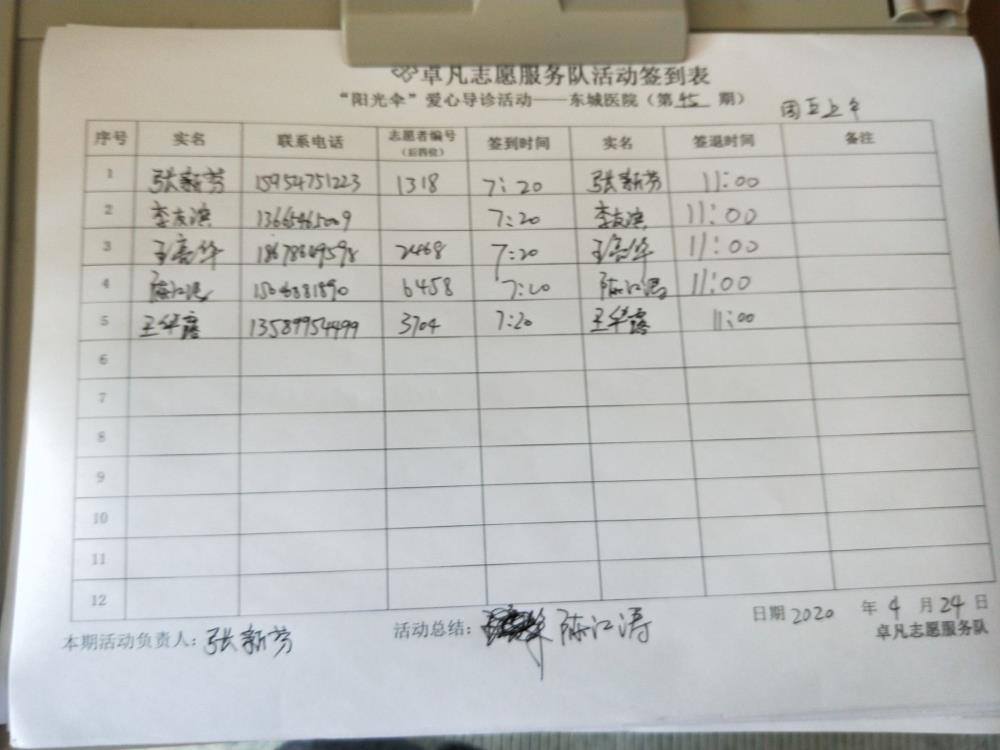 卓凡志愿服务队活动签到表
“阳光伞”爱心导诊活动——东城医院（第45期） 周五上午
序号 实名 联系电话 志愿者编号（后四位） 签到时间 实名 签退时间 备注
1 张新芳 15954751223 1318 7:20 张新芳 11:00
2 李友滨 7:20 李友滨 11:00
3 王亮华 18678649598 2468 7:20 王亮华 11:00
4 陈江涛 6458 陈江涛 11:00
5 王华露 13589954499 3704 7:20 王华露 11:00
6
7
8
9
10
11
12
本期活动负责人：张新芳 活动总结：陈江涛 日期 2020 年 4 月 24 日
卓凡志愿服务队